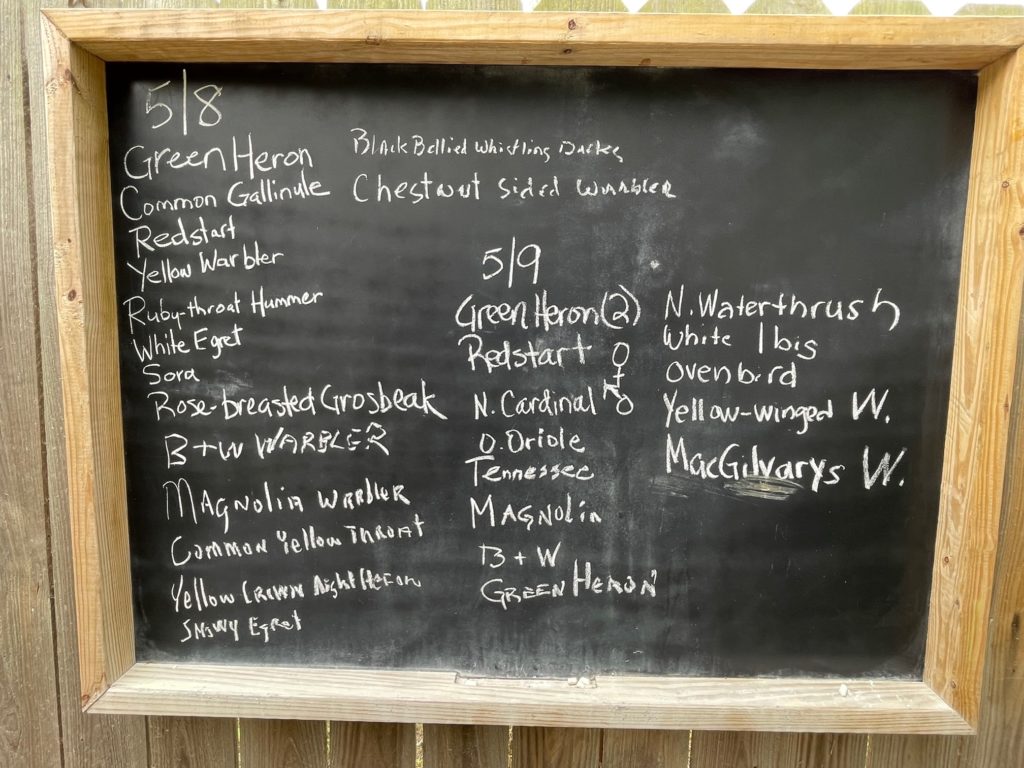 5/8
Green Heron
Common Gallinule
Redstart
Yellow Warbler
Ruby-throat Hummer
White Egret
Sora
Rose-breasted Grosbeak
B+W WARBLER
MAGNOLIA WARBLER
COMMON Yellow THROAT
Yellow CROWN Night Heron
SNOWY EgRet
Black Bellied Whistling Ducks
Chestnut Sided Warbler
5/9
Green Heron (2)
Redstart ♀
N. Cardinal ♂
O. Oriole
Tennessee
MAGNOLIA
B + W
GREEN HERON
N. Waterthrush
White Ibis
Ovenbird
Yellow-winged W.
MacGilvarys W.